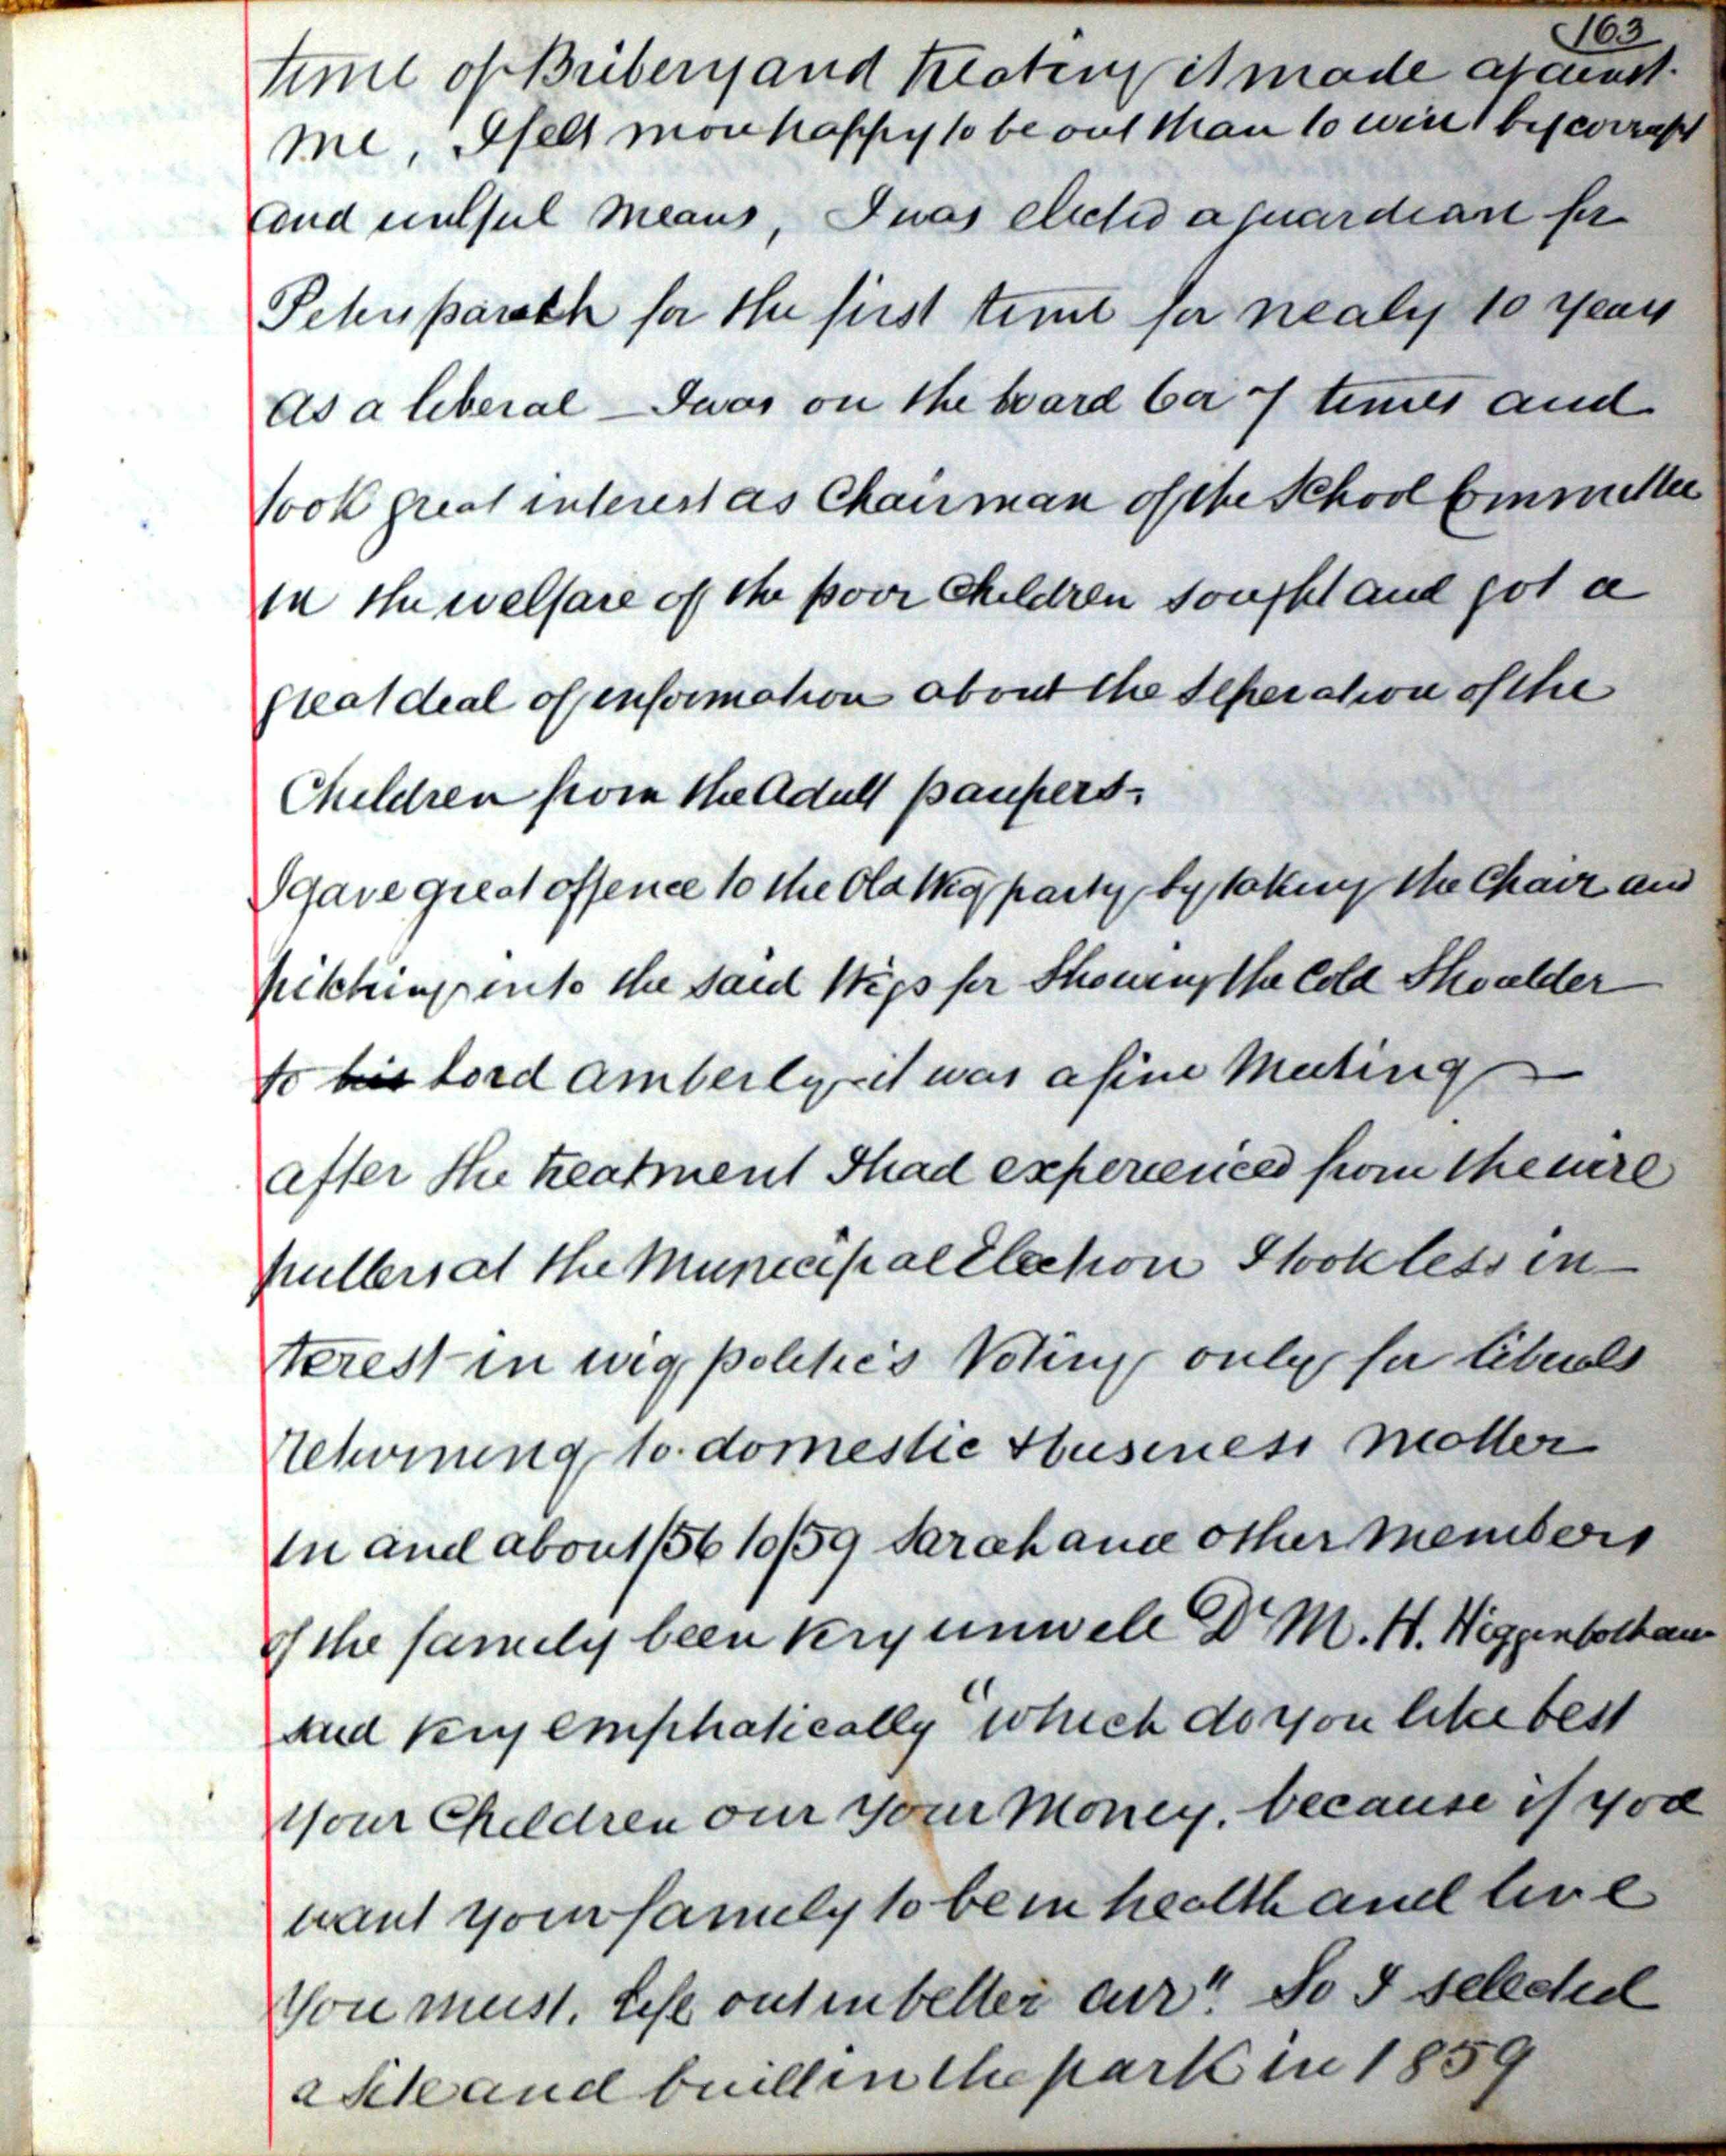 163
time of Bribery and treating it made against
me, I felt more happy to be out than to win by corrupt
and unlful means, I was elected a guardian for
Peters parish for the first time for nealy 10 years
as a liberal – I was on the board 6 or 7 times and
took great interest as Chairman of the School Committee
in the welfare of the poor Children sought and got a
great deal of information about the seperation of the
Children from the Adult paupers-
I gave great offence to the Old Wig party by taking the Chair and
pitching into the said Wigs for Showing the Cold Shoulder
to his Lord Amberly – it was a fine Meeting –
after the treatment I had experienced from the wire
pullers at the Municipal Election I took less in-
terest in wig politics Voting only for liberals
returning to domestic & business matter
In and about /56 to /59 Sarah and other members
of the family been very unwell Dr M. H. Higginbotham
said very emphatically "which do you like best
your Children our your Money, because if you
want your family to be in health and live
you must. Life out in better air". So I selected
a Site and built in the park in 1859